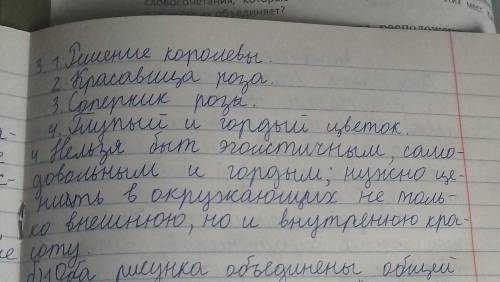 словосочетания, которые
объединяет?
3. 1. Решение королевы.
2. Красавица роза.
3. Соперник розы.
4. Глупый и гордый цветок.
4. Нельзя быт эгоистичным, само-
довольным и гордым; нужно це-
нить в окружающих не толь-
ко внешнюю, но и внутренюю кра-
соту.
Оба рисунка объединены общей